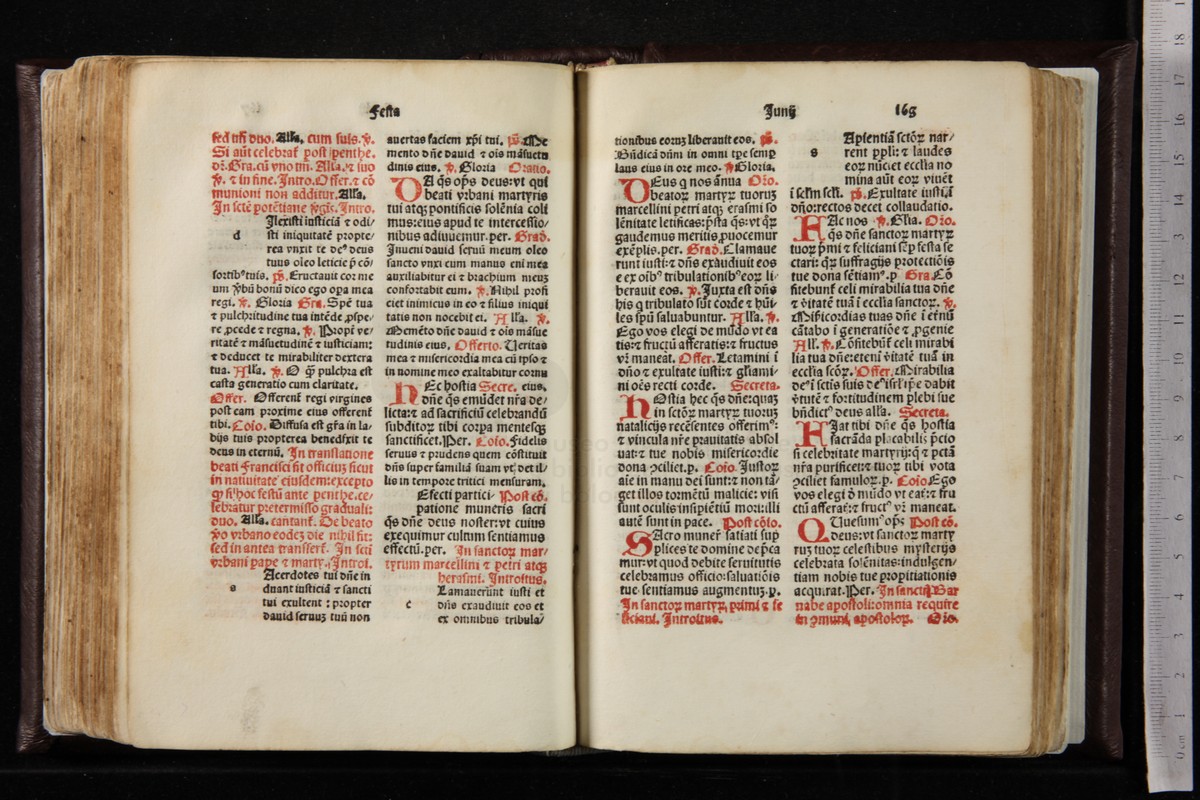 Festa
sed tm̄ duo. Alla. cum suis. ℣.
Si aūt celebrat̄ post penthe.
In sctē potētiane ꝟgīs. Intro.
Ilexisti iusticiā ⁊ odi/
d
sti iniquitatē propte/
rea vnxit te deꝰ deus
tuus oleo leticie p̄ cō/
sortibꝰ tuis. ps. Eructauit cor me
um ꝟbū bonū dico ego opa mea
regi. ℣. Gloria Gra. Spē tua
⁊ pulchritudine tua intēde ꝓspe/
re ꝓcede ⁊ regna. ℣. Propt̄ ve/
ritatē ⁊ māsuetudinē ⁊ iusticiam:
⁊ deducet te mirabiliter dextera
tua. Alla. ℣. O q̄ pulchra est
casta generatio cum claritate.
Offer. Offerent̄ regi virgines
post eam proxime eius offerent̄
tibi. Cōio. Diffusa est gr̄a in la/
bijs tuis propterea benedixit te
deus in eternū. In translatione
beati Francisci fit officiū sicut
in natiuitate eiusdem: excepto
ꝙ si hoc festū ante penthe. ce/
lebratur pretermisso graduali:
duo. Alla. cantant̄. De beato
ꝟo vrbano eodez die nihil fit:
sed in antea transfert̄. In scti
vrbani pape ⁊ marty. Introi.
Acerdotes tui dn̄e in
s
duant iusticiā ⁊ sancti
tui exultent : propter
dauid seruuz tuū non
auertas faciem xp̄i tui. ps. Me
mento dn̄e dauid ⁊ ois māsuetu
dinis eius. ℣. Gloria Oratio.
DA qs̄ op̄s deus: vt qui
beati vrbani martyris
tui atqꝫ pontificis solēnia coli
mus: eius apud te intercessio/
nibus adiuuemur. per. Grad.
Inueni dauid seruū meum oleo
sancto vnxi eum manus eni mea
auxiliabitur ei ⁊ brachium meuꝫ
confortabit eum. ℣. Nihil profi
ciet inimicus in eo ⁊ filius iniqui
tatis non nocebit ei. Alla. ℣.
Memēto dn̄e dauid ⁊ ois māsue
tudinis eius. Offerto. Ueritas
mea ⁊ misericordia mea cū ipso ⁊
in nomine meo exaltabitur cornu
HEc hostia Secre. eius.
dn̄e qs̄ emūdet nr̄a de/
licta: ⁊ ad sacrificiū celebrandū
subditoꝝ tibi corpa mentesqꝫ
sanctificet. Per. Cōio. Fidelis
seruus ⁊ prudens quem cōstituit
dn̄s super familiā suam vt det il/
lis in tempore tritici mensuram.
Efecti partici/ Post cō.
patione muneris sacri
qs̄ dn̄e deus noster: vt cuius
exequimur cultum sentiamus
effectū. per. In sanctoꝝ mar/
tyrum marcellini ⁊ petri atqꝫ
herasmi. Introitus.
Lamauerūnt iusti et
c
dn̄s exaudiuit eos et
ex omnibus tribula/
Junij 168
tionibus eoruꝫ liberauit eos. ps.
Bn̄dicā dn̄m in omni tpe semp
laus eius in ore meo. ℣. Gloria.
DEus q nos ānua Oro.
beatoꝝ martyꝝ tuoruꝫ
marcellini petri atqꝫ erasmi so
lēnitate letificas: p̄sta qs̄: vt qꝝ
gaudemus meritis ꝓuocemur
exēplis. per. Grad. Clamaue
runt iusti: ⁊ dn̄s exaudiuit eos
e ex oībꝰ tribulationibꝰ eoꝝ li/
berauit eos. ℣. Juxta est dn̄s
his q tribulato sūt corde ⁊ hūi/
les sp̄u saluabuntur. Alla. ℣.
Ego vos elegi de mūdo vt ea
tis: ⁊ fructū afferatis: ⁊ fructus
vr̄ maneat. Offer. Letamini i
dn̄o ⁊ exultate iusti: ⁊ gl̄iami/
ni oēs recti corde. Secreta.
HOstia hec qs̄ dn̄e: quaꝫ
in sctōꝝ martyꝝ tuoruꝫ
natalicijs recēsentes offerimꝰ:
⁊ vincula nr̄e prauitatis absol
uat: ⁊ tue nobis misericordie
dona ꝯciliet. p. Cōio. Justoꝝ
aīe in manu dei sunt: ⁊ non tā/
get illos tormētū malicie: visi
sunt oculis insipiētiū mori: illi
autē sunt in pace. Post cōio.
SAcro muneꝝ satiati sup
plices te domine dep̄ca
mur: vt quod debite seruitutis
celebramus officio: saluatiōis
tue sentiamus augmentuꝫ. p.
In sanctoꝝ martyꝝ. primi ⁊ fe
liciani. Introitus.
Apientiā sctōꝝ nar/
s
rent ppli: ⁊ laudes
eoꝝ nūciet eccl̄ia no
mina aūt eoꝝ viuēt
i sclm scli. ps. Exultate iusti ī
dn̄o: rectos decet collaudatio.
FAc nos ℣. Gl̄ia. Oro.
qs̄ dn̄e sanctoꝝ martyꝝ
tuoꝝ p̄mi ⁊ feliciani sēp festa se
ctari: qꝝ suffragijs protectiōis
tue dona sētiamꝰ. p Gra. Cō
fitebunt̄ celi mirabilia tua dn̄e
⁊ ꝟitatē tuā ī eccl̄ia sanctoꝝ. ℣.
Misericordias tuas dn̄e ī etnū
cātabo ī generatiōe ⁊ ꝓgenie
All. ℣. Cōfitebūt̄ celi mirabi
lia tua dn̄e: eteni ꝟitatē tuā in
eccl̄ia scōꝝ. Offer. Mirabilia
deꝰ ī sctis suis deꝰ isrl̄ ip̄e dabit
ꝟtutē ⁊ fortitudinem plebi sue
bn̄dictꝰ deus alla. Secreta.
FIat tibi dn̄e qs̄ hostia
sacrāda placabilis p̄cio
si celebritate martyrij: q ⁊ petā
nr̄a purificet: ⁊ tuoꝝ tibi vota
ꝯciliet famuloꝝ. p. Cōio Ego
vos elegi ō mūdo vt eat̄: ⁊ fru
ctū afferat̄: ⁊ fructꝰ vr̄ maneat.
QUesumꝰ op̄s Post cō.
deus: vt sanctoꝝ marty
ruꝫ tuoꝝ celestibus mysterijs
celebrata solēnitas: indulgen/
tiam nobis tue propitiationis
acquirat. Per. In sancti Bar
nabe apostoli: omnia require
in ꝯmuni. apostoloꝝ. Oro.